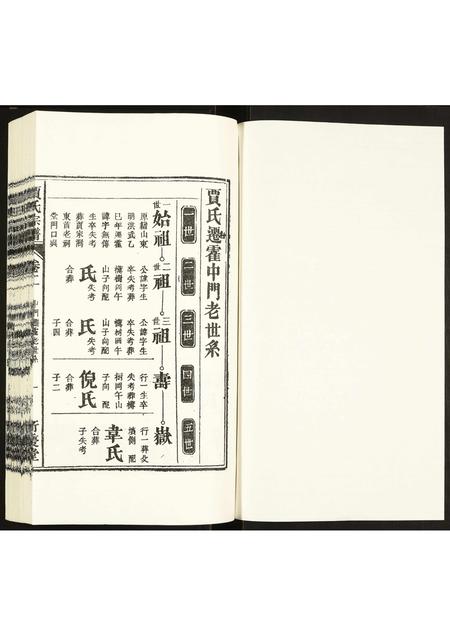 賈氏遷霍中門老世系
一世
二世
三世
四世
五世
一世
始祖
原籍山東
明洪武乙
巳年遷霍
諱字無傳
生卒失考
葬賈家
東首老祠
堂門口
二世
祖
公諱字生
卒失考葬
山子向配
氏失考
合葬
三世
祖
公諱字生
卒失考葬
山子向配
氏失考
合葬
子四
壽
行一生卒
失考葬
午山
子向配
倪氏
合葬
子二
嶽
行一葬
墳側配
韋氏
合葬
子失考
賈氏宗譜
卷
一